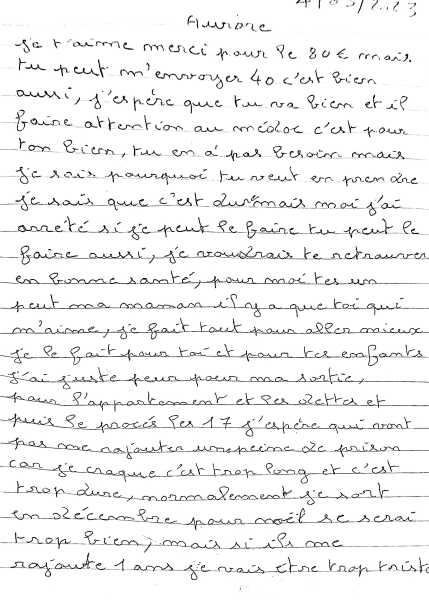 4/05/2023
Aurore
je t'aime merci pour le 80€ mais
tu peut m'envoyer 40 c'est bien
aussi, j'espére que tu va bien et il
faire attention au médoc c'est pour
ton bien, tu en a pas besoin mais
je sais pourquoi tu veut en prendre
je sais que c'est dur mais moi j'ai
arreté si je peut le faire tu peut le
faire aussi, je voudrais te retrouver
en bonne santé, pour moi tes un
peut ma maman il y a que toi qui
m'aime, je fait tout pour aller mieux
je le fait pour toi et pour tes enfants
j'ai juste peur pour ma sortie,
pour l'appartement et les dettes et
puis le procés les 17 j'espére qui vont
pas me rajouter une peine de prison
car je craque c'est trop long et c'est
trop dure, normalement je sort
en décembre pour noël se serai
trop bien, mais si ils me
rajoute 1 ans je vais etre trop triste